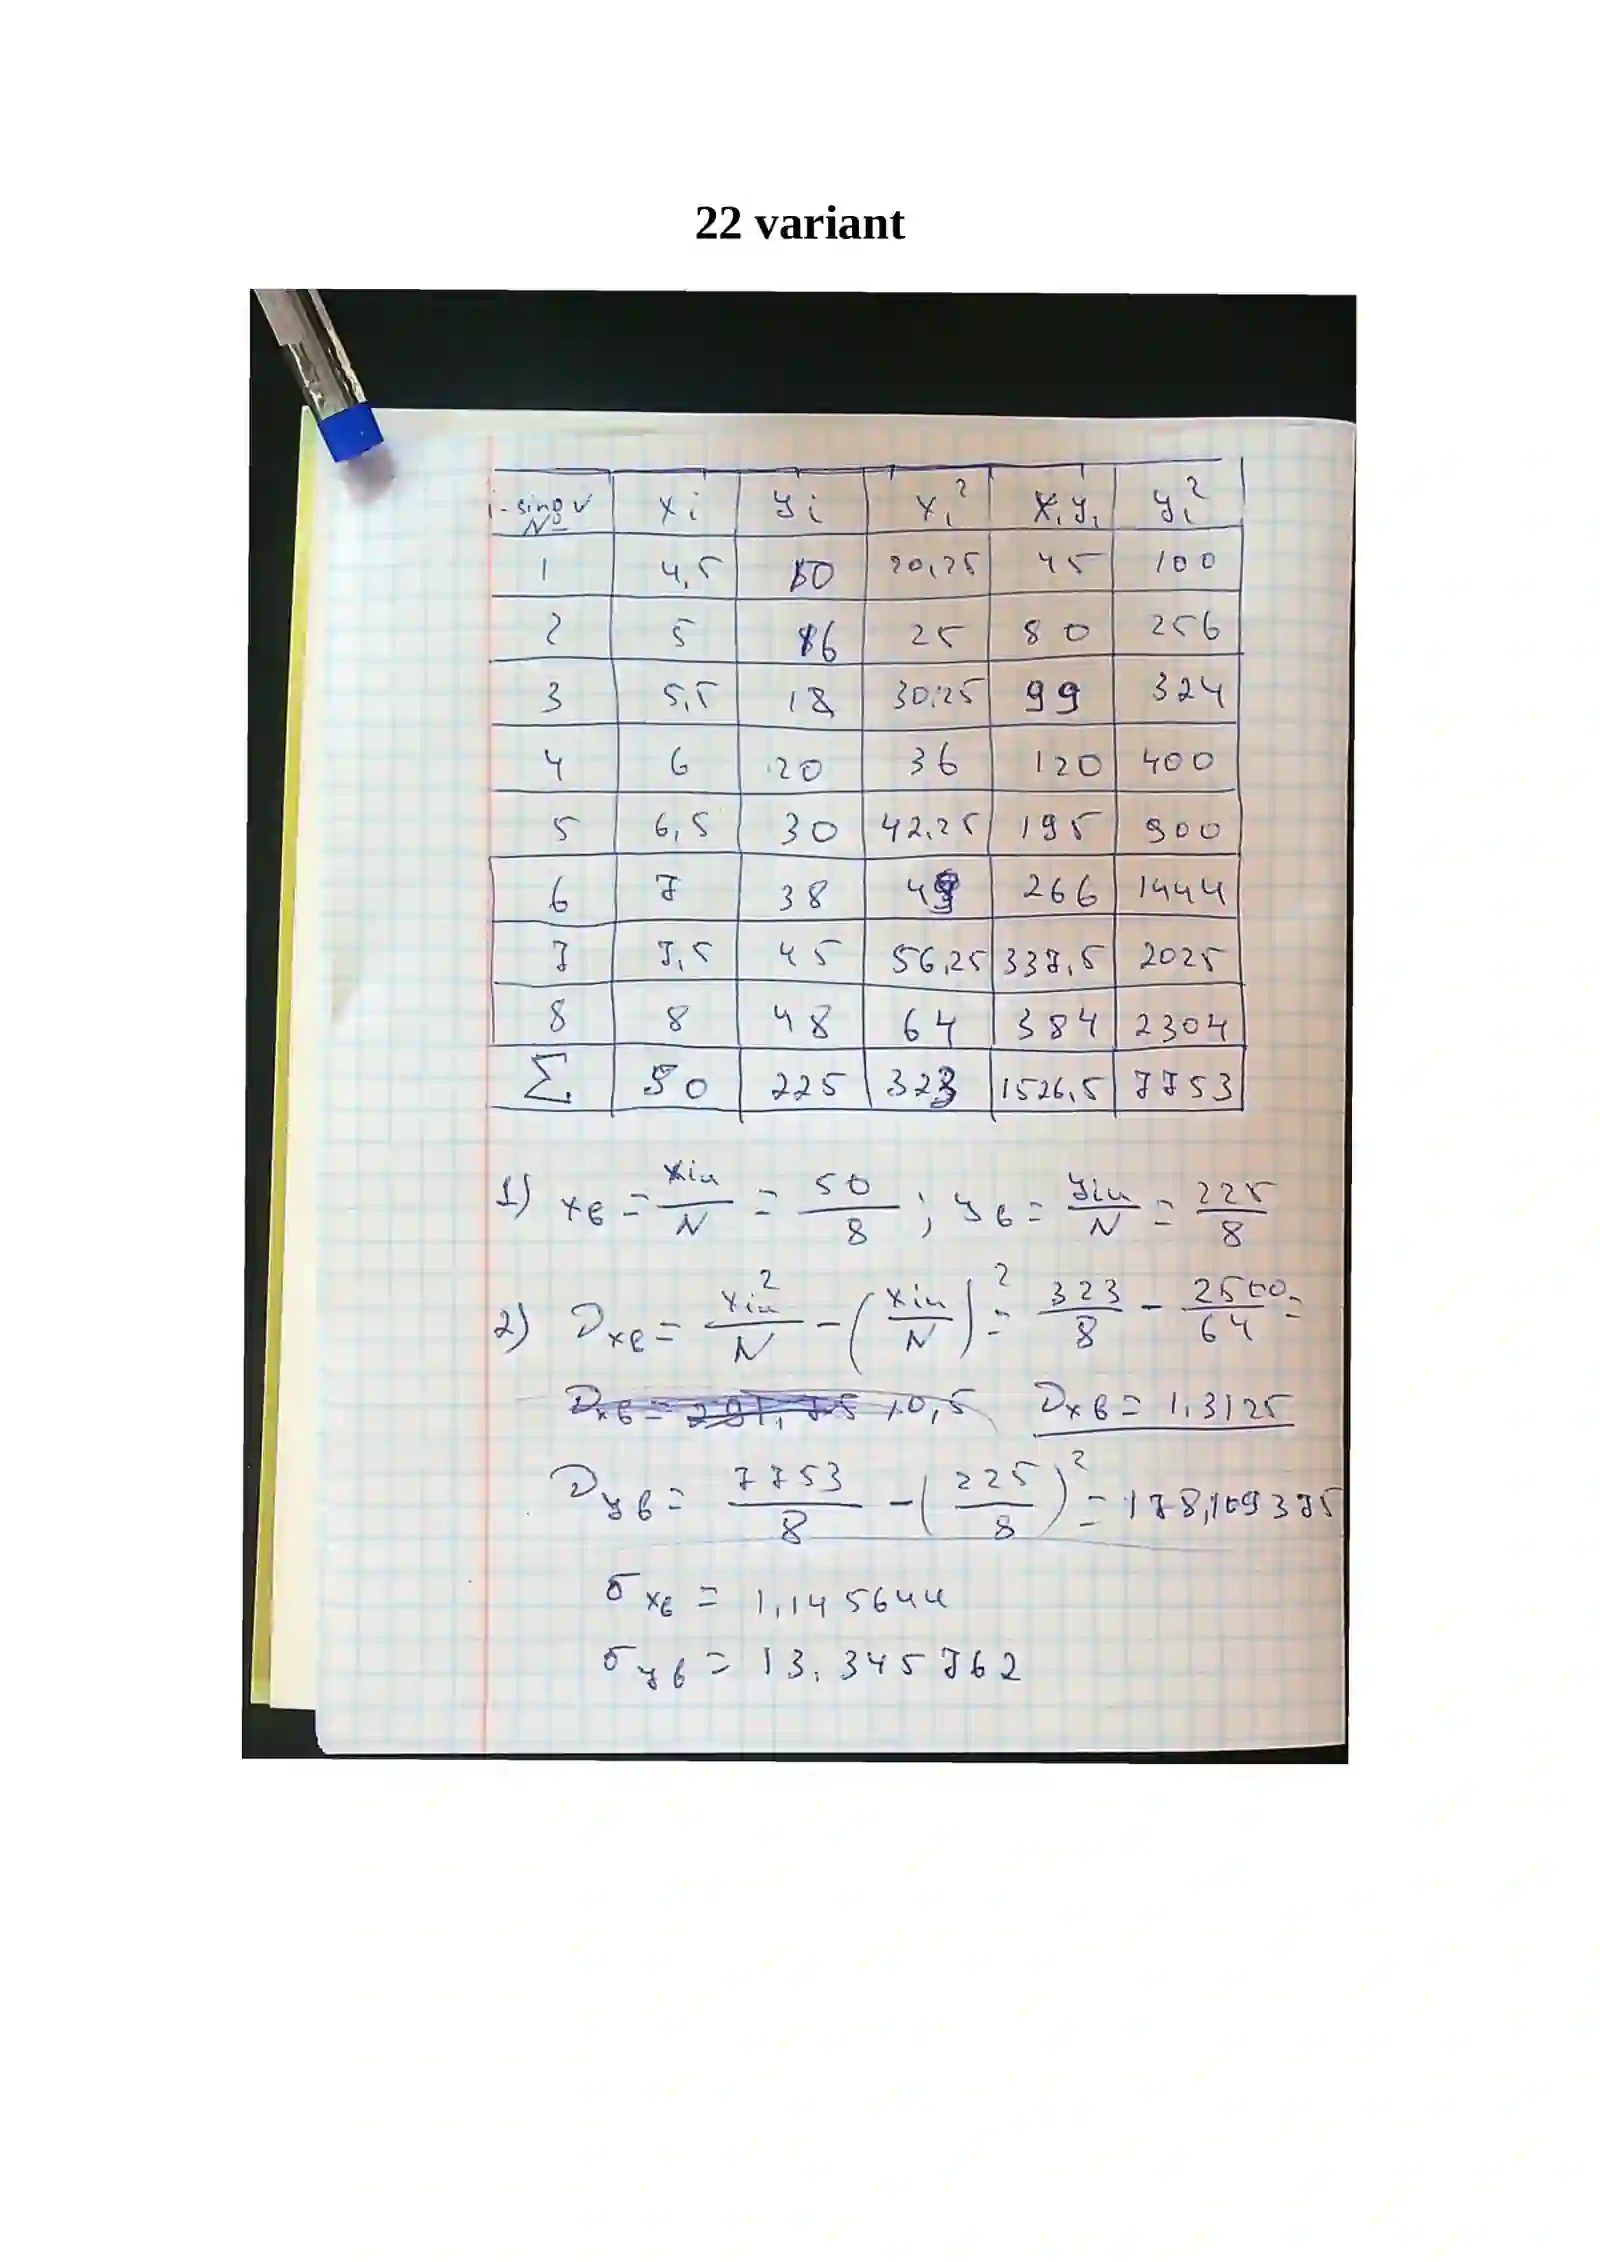 22 variant
i-sinov № xi yi xi² xiyi yi²
1 4,5 10 20,25 45 100
2 5 16 25 80 256
3 5,5 18 30,25 99 324
4 6 20 36 120 400
5 6,5 30 42,25 195 900
6 7 38 49 266 1444
7 7,5 45 56,25 337,5 2025
8 8 48 64 384 2304
Σ 50 225 323 1526,5 7753
1) xв = xiu/N = 50/8 ; yв = yiu/N = 225/8
2) Dxв = xiu²/N - (xiu/N)² = 323/8 - 2500/64 =
10,5 Dxв = 1,3125
Dyв = 7753/8 - (225/8)² = 178,109375
σxв = 1,145644
σyв = 13,345762